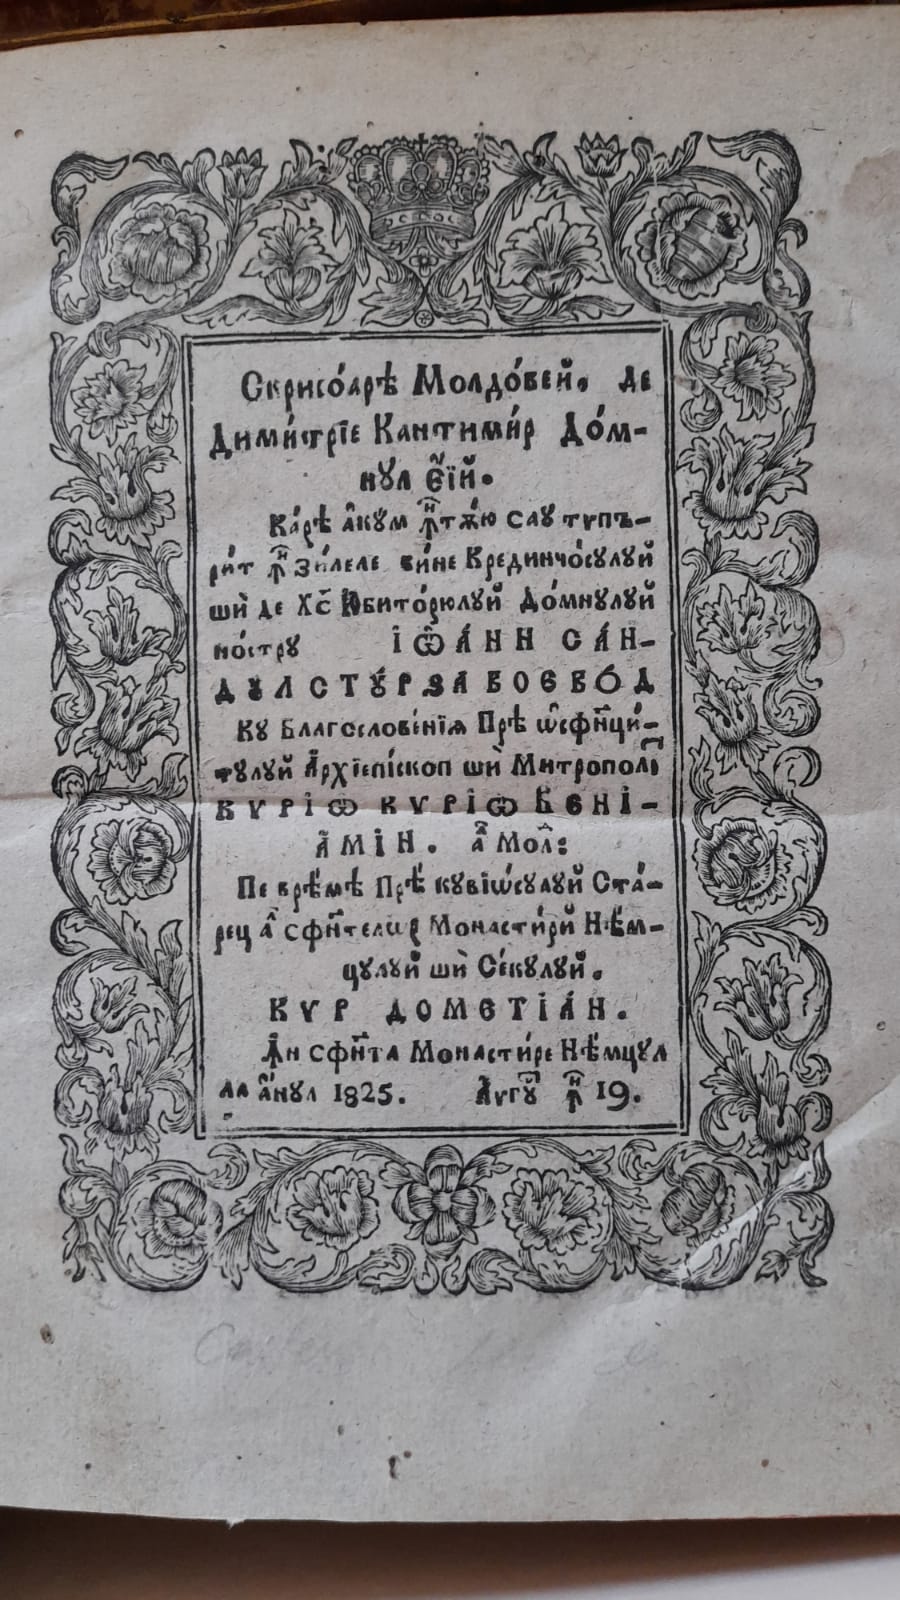 Скрисо́арѣ Молдо́вей, де
Дими́стрїе Кантими́р До́м-
нꙋл Є҆ї́й.
Ка́рѣ а҆кꙋм ꙟ҆тѫ́ю саꙋ типъ-
ри́т ꙟ҆ зи́леле би́не Крединчо́сꙋлꙋй
шѝ де Хс҃ Юбито́рюлꙋй До́мнꙋлꙋй
но́стрꙋ І҆Ѡ҆А́НН СА́Н-
ДꙋЛ СТꙋ́РЗА ВОЄВО́Д
Кꙋ Благословенїѧ Прѣ ѡ҆сфн҃ци́-
тꙋлꙋй А҆рхїепі́скоп шѝ Митропол
КѴРІѠ КѴРІѠ ВЕНІ-
А҆МІ́Н. а҆ Мол:
Пе врѣ́мѣ Прѣ кꙋвїѡ́сꙋлꙋй Ста́-
рец а҆ сфн҃телѡр Монасти́рй Нѣ́м-
цꙋлꙋй шѝ Се́кꙋлꙋй.
КѴР ДОМЕТІА́Н.
Ꙟ҆н сфн҃та Монасти́ре Нѣ́мцꙋл
ла а҆́нꙋл 1825. А҆́ѵгꙋ ꙟ҆ 19.